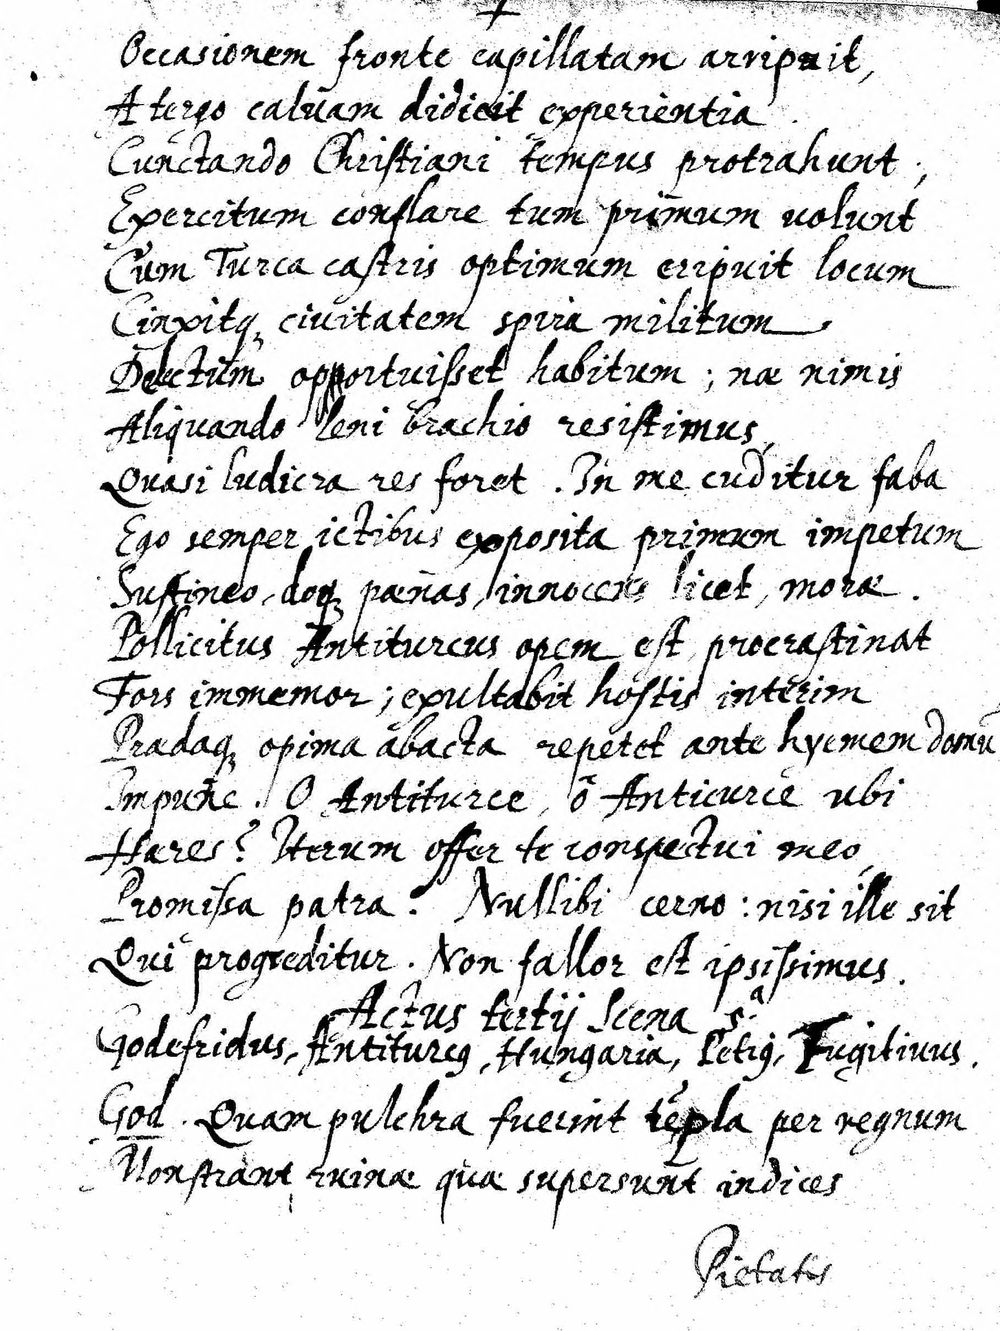 Occasionem fronte capillatam arripuit,
A tergo caluam didicit experientia.
Cunctando Christiani tempus protrahunt;
Exercitum conflare tum primum uolunt
Cum Turca castris optimum eripuit locum
Cinxitq, ciuitatem spira militum.
Delectum opportuisset habitum; næ nimis
Aliquando leni brachio resistimus,
Quasi ludicra res foret. In me cuditur faba
Ego semper ictibus exposita primum impetum
Sustineo, doq, pænas, innocens licet, moræ.
Pollicitus Antiturcus opem est, procrastinat
Fors immemor; exultabit hostis interim
Prædaq, opima abacta repetet ante hyemem domū
Impune. O Antiturce, ô Anticurce ubi
Hæres? Iterum offer te conspectui meo,
Promissa patra. Nullibi cerno: nisi ille sit
Qui progreditur. Non fallor est ipsissimus.
Actus tertij Scena 5.ᵃ
Godefridus, Antiturcq, Hungaria, Letiq, Fugitiuus.
God. Quam pulchra fuerint tēpla per regnum
Monstrant ruinæ quæ supersunt indices
Pietatis